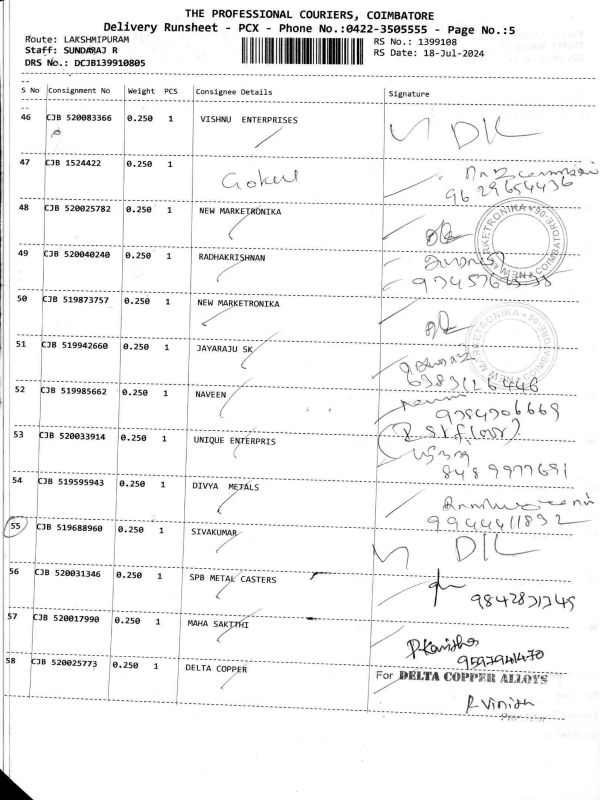 THE PROFESSIONAL COURIERS, COIMBATORE
Delivery Runsheet - PCX - Phone No.:0422-3505555 - Page No.:5
Route: LAKSHMIPURAM RS No.: 1399108
Staff: SUNDARAJ R RS Date: 18-Jul-2024
DRS No.: DCJB139910805
S No Consignment No Weight PCS Consignee Details Signature
46 CJB 520083366 0.250 1 VISHNU ENTERPRISES DIL
47 CJB 1524422 0.250 1 Gokul
9629654436
48 CJB 520025782 0.250 1 NEW MARKETRONIKA
49 CJB 520040240 0.250 1 RADHAKRISHNAN
50 CJB 519873757 0.250 1 NEW MARKETRONIKA
51 CJB 519942660 0.250 1 JAYARAJU SK
6383116446
52 CJB 519985662 0.250 1 NAVEEN
53 CJB 520033914 0.250 1 UNIQUE ENTERPRIS
8489977691
54 CJB 519595943 0.250 1 DIVYA METALS
9944411892
55 CJB 519688960 0.250 1 SIVAKUMAR DIL
56 CJB 520031346 0.250 1 SPB METAL CASTERS
9842831349
57 CJB 520017990 0.250 1 MAHA SAKTHI
9597941470
58 CJB 520025773 0.250 1 DELTA COPPER For DELTA COPPER ALLOYS